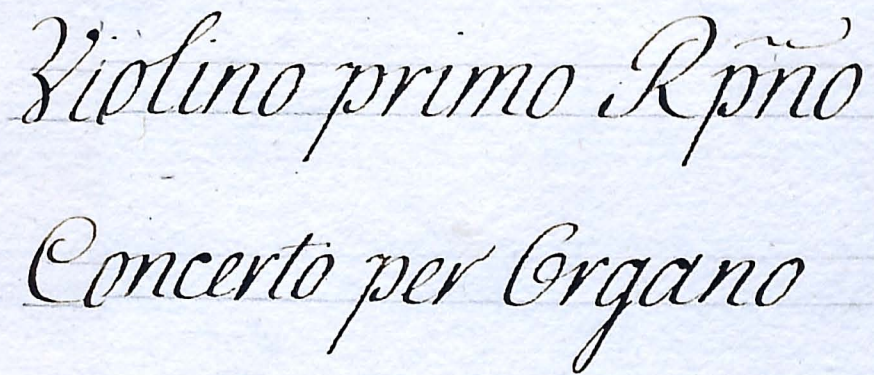 Violino primo Rp̃ño
Concerto per Organo